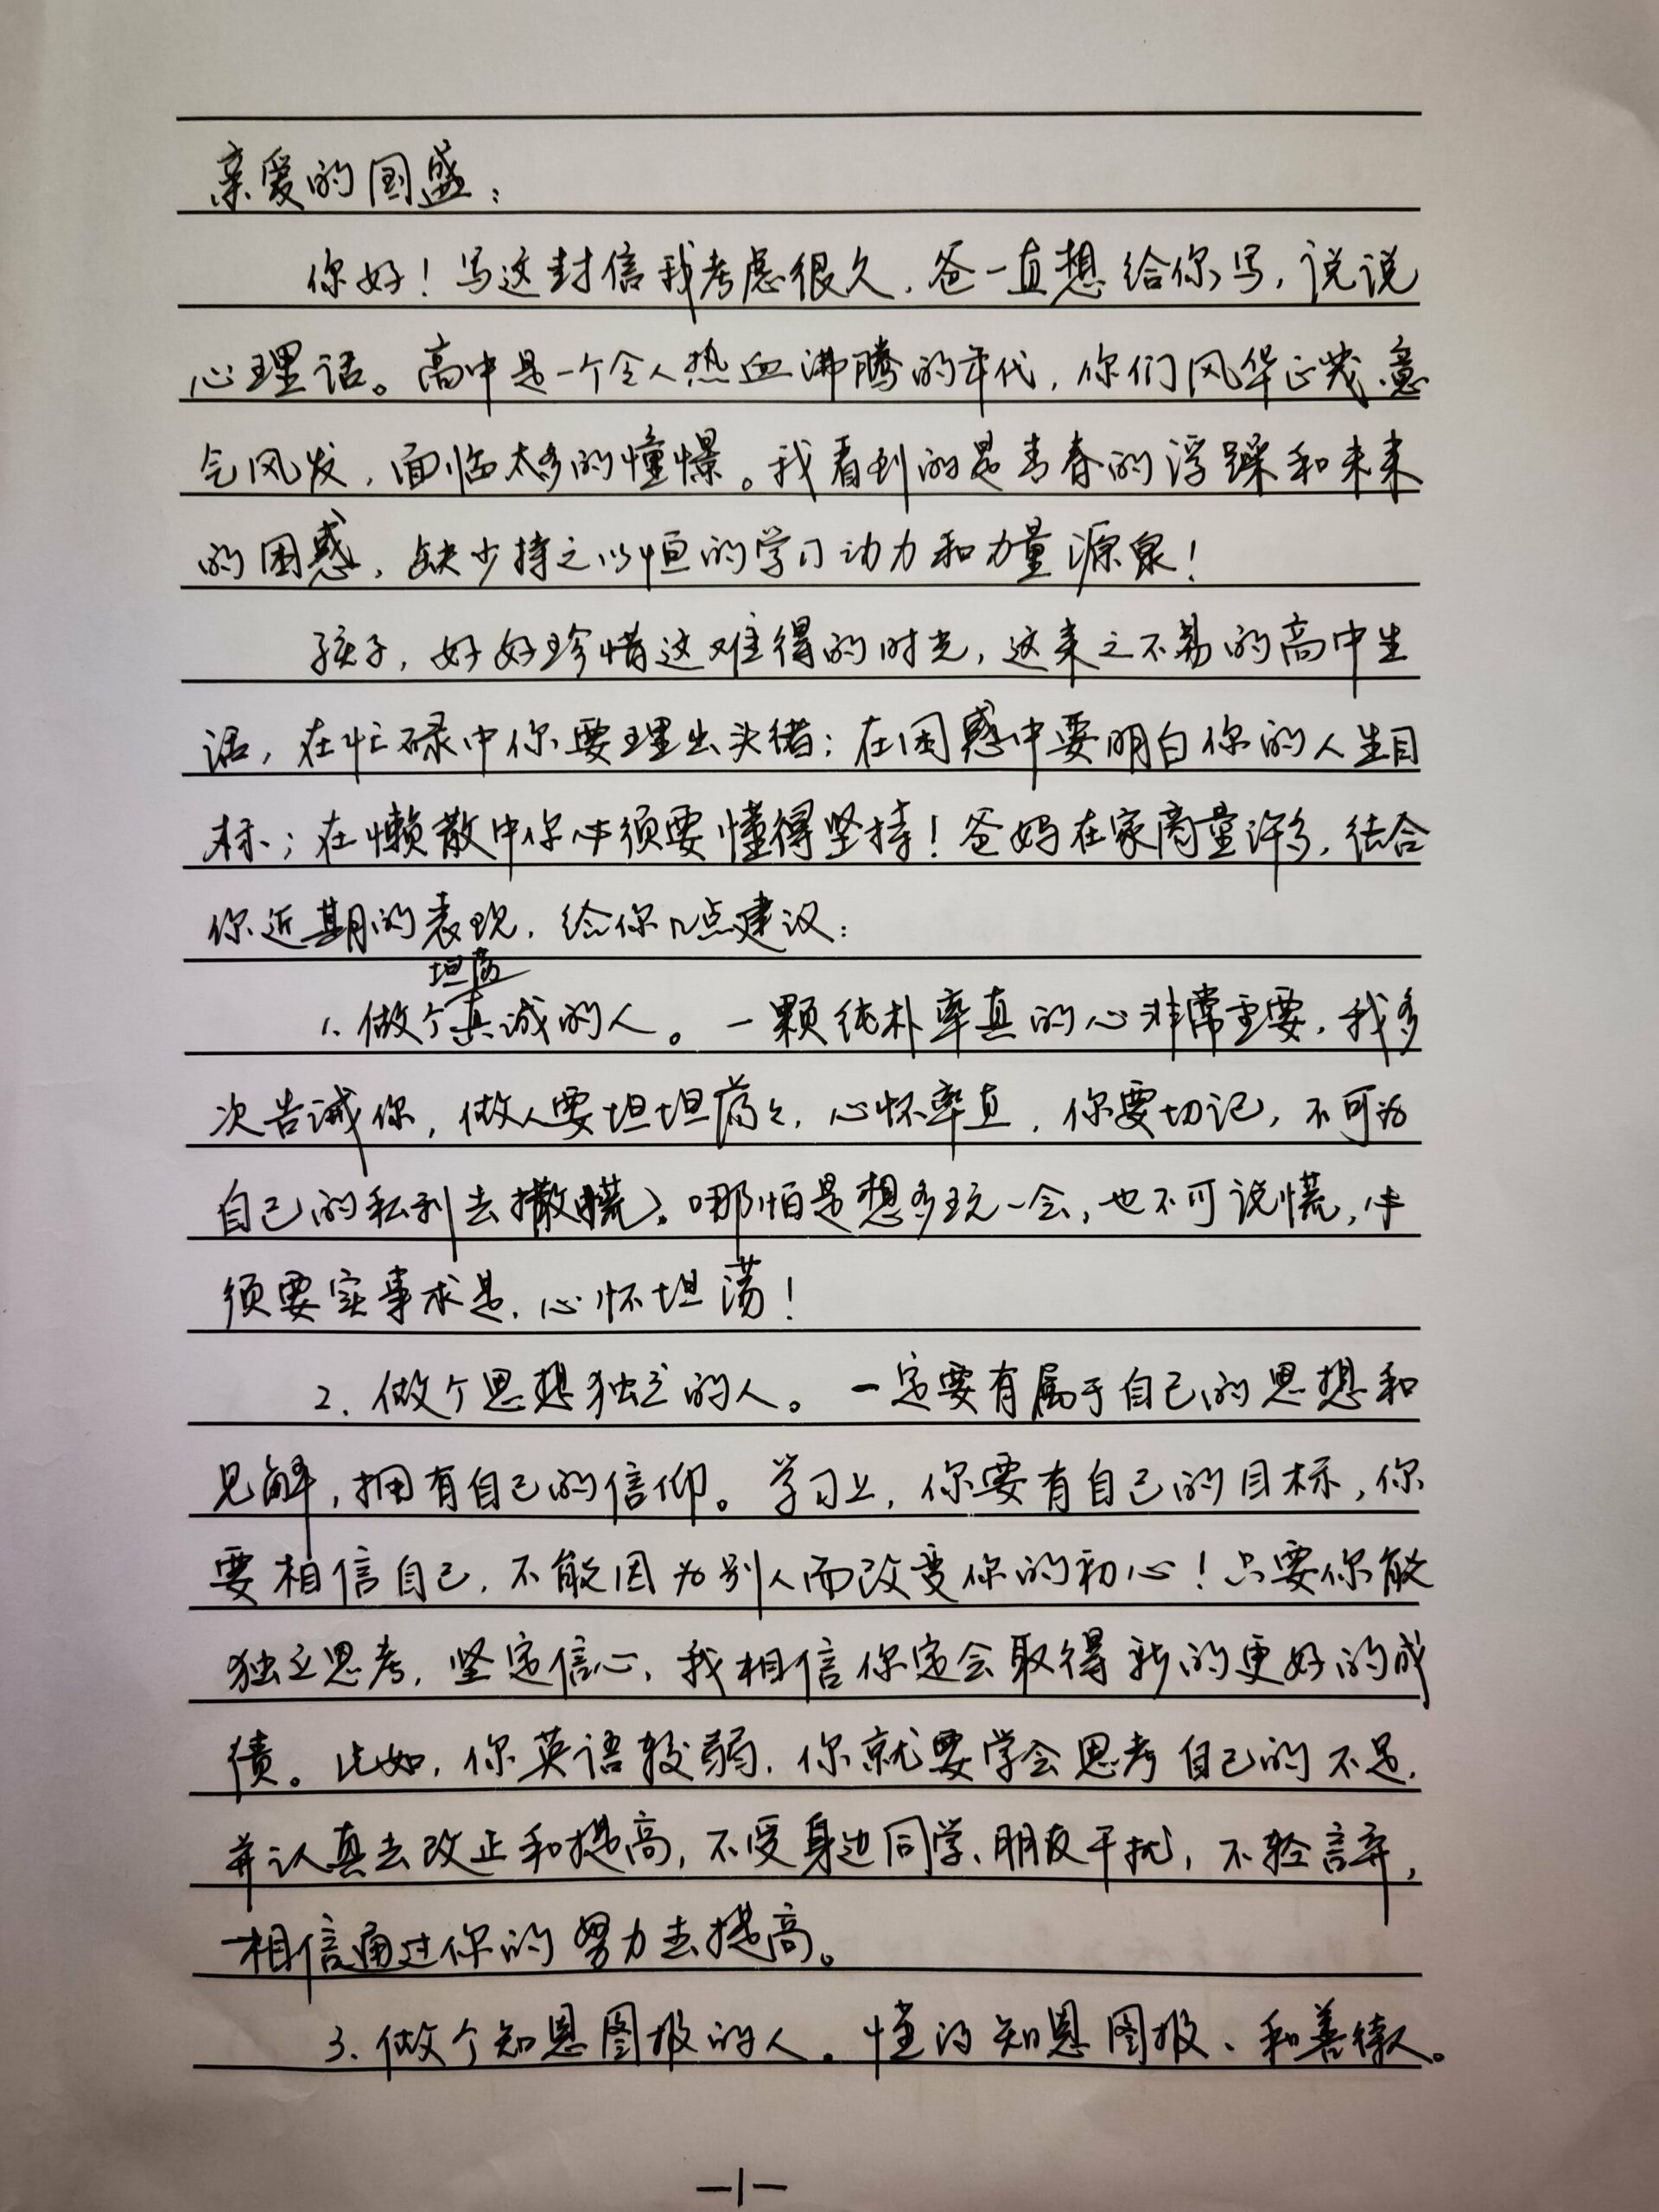 亲爱的国盛：
你好！写这封信我考虑很久，爸一直想给你写，说说
心理话。高中是一个令人热血沸腾的年代，你们风华正茂、意
气风发，面临太多的憧憬。我看到的是青春的浮躁和未来
的困惑，缺少持之以恒的学习动力和力量源泉！
孩子，好好珍惜这难得的时光，这来之不易的高中生
活，在忙碌中你要理出头绪；在困惑中要明白你的人生目
标；在懒散中你必须要懂得坚持！爸妈在家商量许多，结合
你近期的表现，给你几点建议：
坦荡
1、做个真诚的人。一颗纯朴率真的心非常重要，我多
次告诫你，做人要坦坦荡々，心怀率直，你要切记，不可为
自己的私利去撒慌。哪怕是想多玩一会，也不可说慌，必
须要实事求是，心怀坦荡！
2、做个思想独立的人。一定要有属于自己的思想和
见解，拥有自己的信仰。学习上，你要有自己的目标，你
要相信自己，不能因为别人而改变你的初心！只要你敢
独立思考，坚定信心，我相信你定会取得新的更好的成
绩。比如，你英语较弱，你就要学会思考自己的不足，
并认真去改正和提高，不受身边同学、朋友干扰，不轻言弃，
相信通过你的努力去提高。
3、做个知恩图报的人。懂的知恩图报、和善待人。
—1—